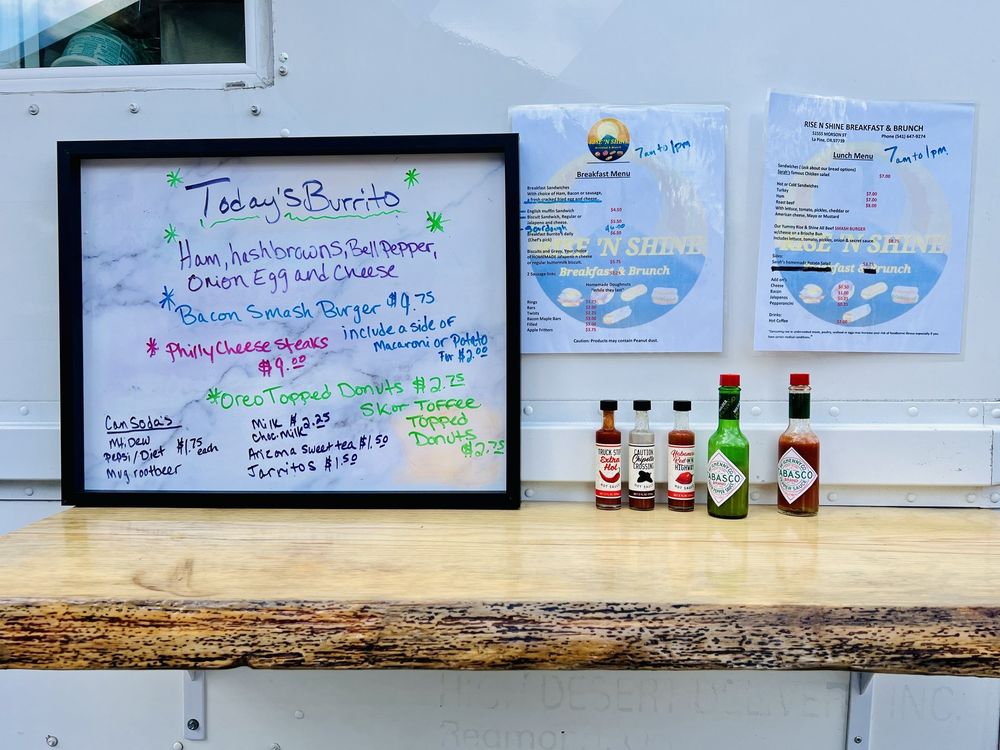 Today's Burrito
Ham, hashbrowns, Bell pepper,
Onion Egg and Cheese
Bacon Smash Burger $9.75
include a side of
Macaroni or Potato
For $2.00
Philly Cheese Steaks
$9.00
Oreo Topped Donuts $2.75
Skor Toffee
Topped
Donuts
$2.75
Can Soda's
Mt. Dew
Pepsi / Diet
Mug rootbeer
$1.75 each
Milk $2.25
Choc. milk
Arizona sweet tea $1.50
Jarritos $1.50
RISE 'N SHINE
7am to 1pm
Breakfast Menu
Breakfast Sandwiches
With choice of Ham, Bacon or sausage,
a fresh cracked fried egg and cheese.
English muffin Sandwich
Biscuit Sandwich, Regular or
Jalapeno and cheese.
Sourdough
Breakfast Burrito's daily
(Chef's pick)
Biscuits and Gravy, Your choice
of HOMEMADE Jalapeno n cheese
or regular buttermilk biscuit.
2 Sausage links
RISE 'N SHINE
Breakfast & Brunch
Homemade Doughnuts
"While they last"
Rings
Bars
Twists
Bacon Maple Bars
Filled
Apple Fritters
Caution: Products may contain Peanut dust.
RISE N SHINE BREAKFAST & BRUNCH
51555 MORSON ST
La Pine, OR.97739
Phone (541) 647-9274
Lunch Menu
7am to 1pm.
Sandwiches ( ask about our bread options)
Sarah's famous Chicken salad
$7.00
Hot or Cold Sandwiches
Turkey $7.00
Ham $7.00
Roast Beef $8.00
With lettuce, tomato, pickles, cheddar or
American cheese, Mayo or Mustard
Our Yummy Rise n Shine All Beef SMASH BURGER
w/cheese on a Brioche Bun
Includes lettuce, tomato, pickles, onion & secret sauce
Sides:
Sarah's homemade Potato Salad
RISE 'N SHINE
Breakfast & Brunch
Add on's
Cheese
Bacon
Jalapenos
Pepperoncini
Drinks:
Hot Coffee
TRUCK STOP
Extra
Hot
HOT SAUCE
CAUTION
Chipotle
CROSSING
HOT SAUCE
Habanero
HIGHWAY
HOT SAUCE
TABASCO
BRAND
TABASCO
BRAND
HIGH DESERT DELIVERY INC.
Redmond